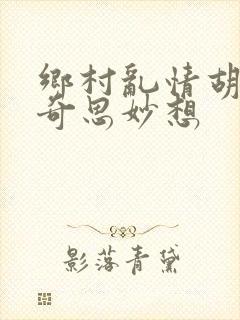 鄉村亂情胡
奇思妙想
影落青黛